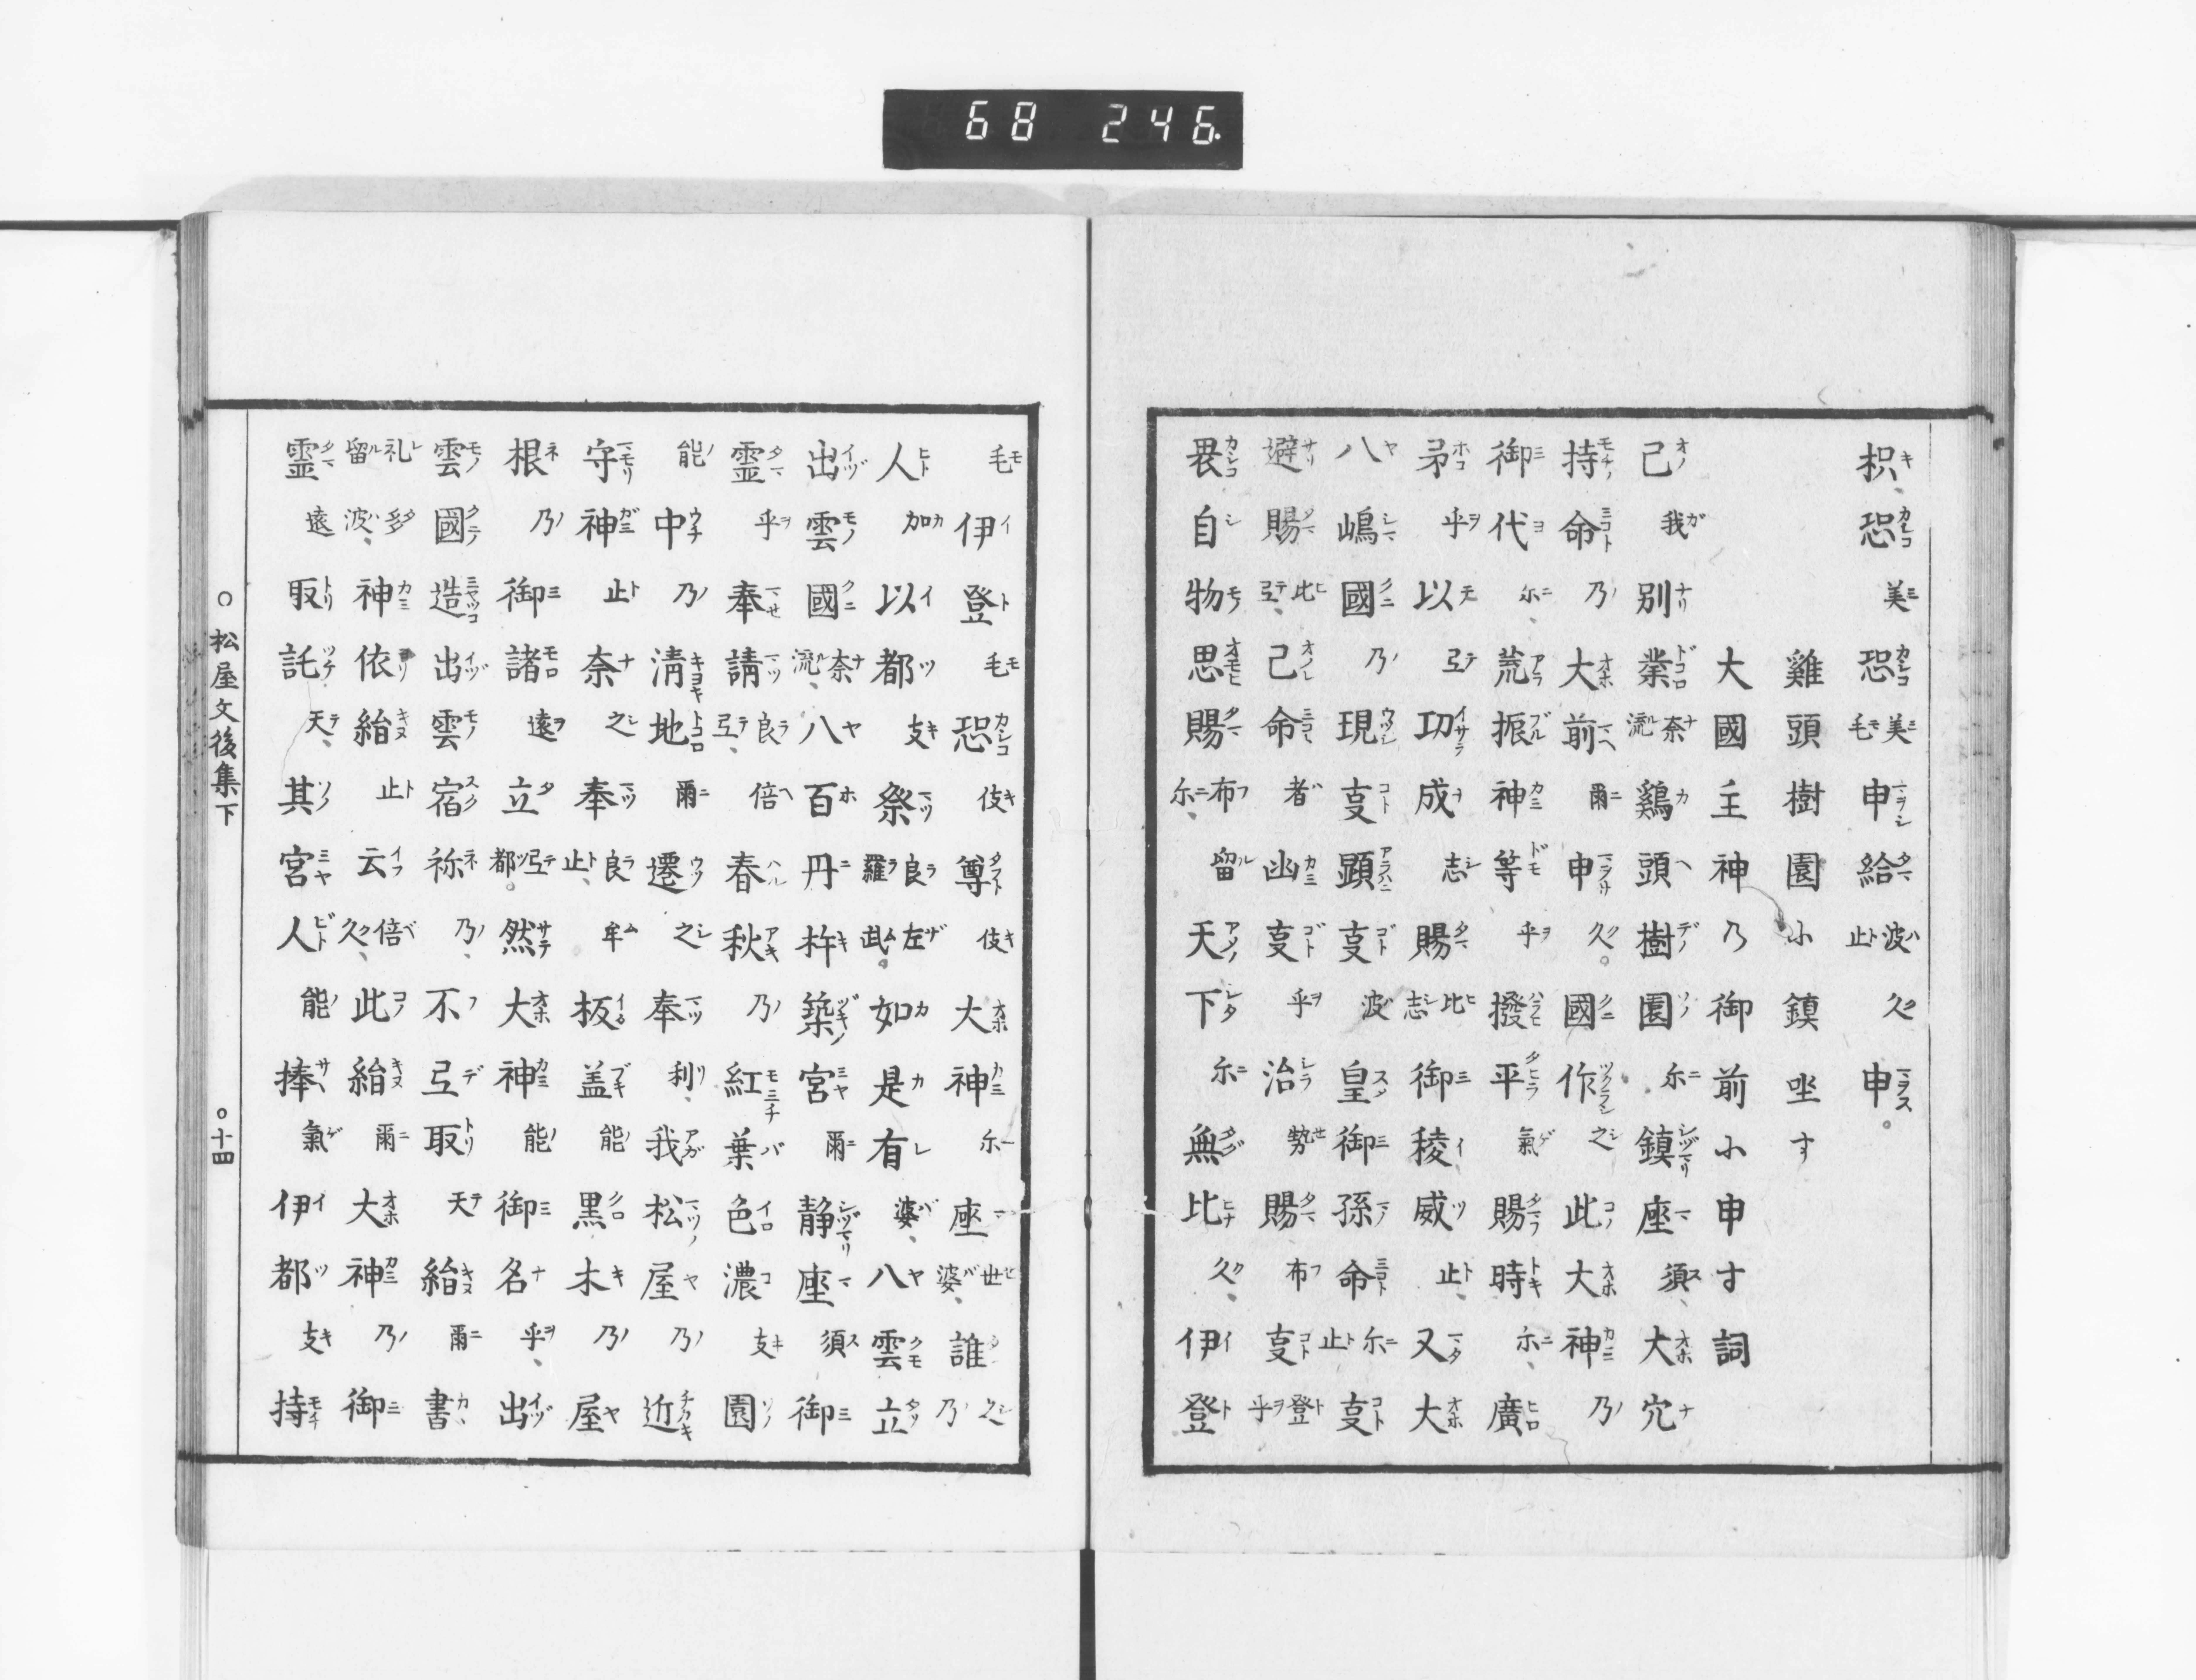 68 246.
枳、恐美恐美毛申給波止久申。
雞頭樹園小鎮坐す
大國主神乃御前小申す詞
己我別業奈流鷄頭樹園尓鎮座須、大穴
持命乃大前爾申久。國作之此大神乃
御代尓、荒振神等乎撥平氣賜時尓、廣
矛乎以弖功成志賜比志御稜威止、又大
八嶋國乃現㕝顕㕝波皇御孫命尓止㕝
避賜比弖、己命者幽㕝乎治勢賜布㕝登乎
畏自物思賜布尓、留天下尓無比久、伊登
毛伊登毛恐伎尊伎大神尓座世婆、誰之乃
人加以都支祭良羅左武。如是有婆、八雲立
出雲國奈流、八百丹杵築宮爾静座須御
霊乎奉請良弖、倍春秋乃紅葉色濃支園
能中乃清地爾遷之奉利、我松屋乃近
守神止奈之奉良止、牟板盖能黒木乃屋
根乃御諸遠立弖都。然大神能御名乎、出
雲國造出雲宿祢乃、不弖取天紿爾書
礼留多波、神依紿止云倍久、此紿爾大神乃御
霊遠取託天、其宮人能捧氣伊都支持
○松屋文後集下 ○十四